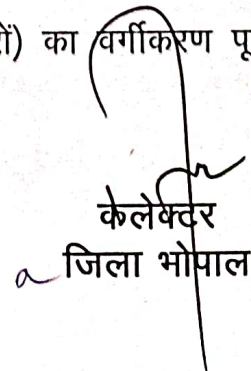 का वर्गीकरण
केलेक्टर
जिला भोपाल